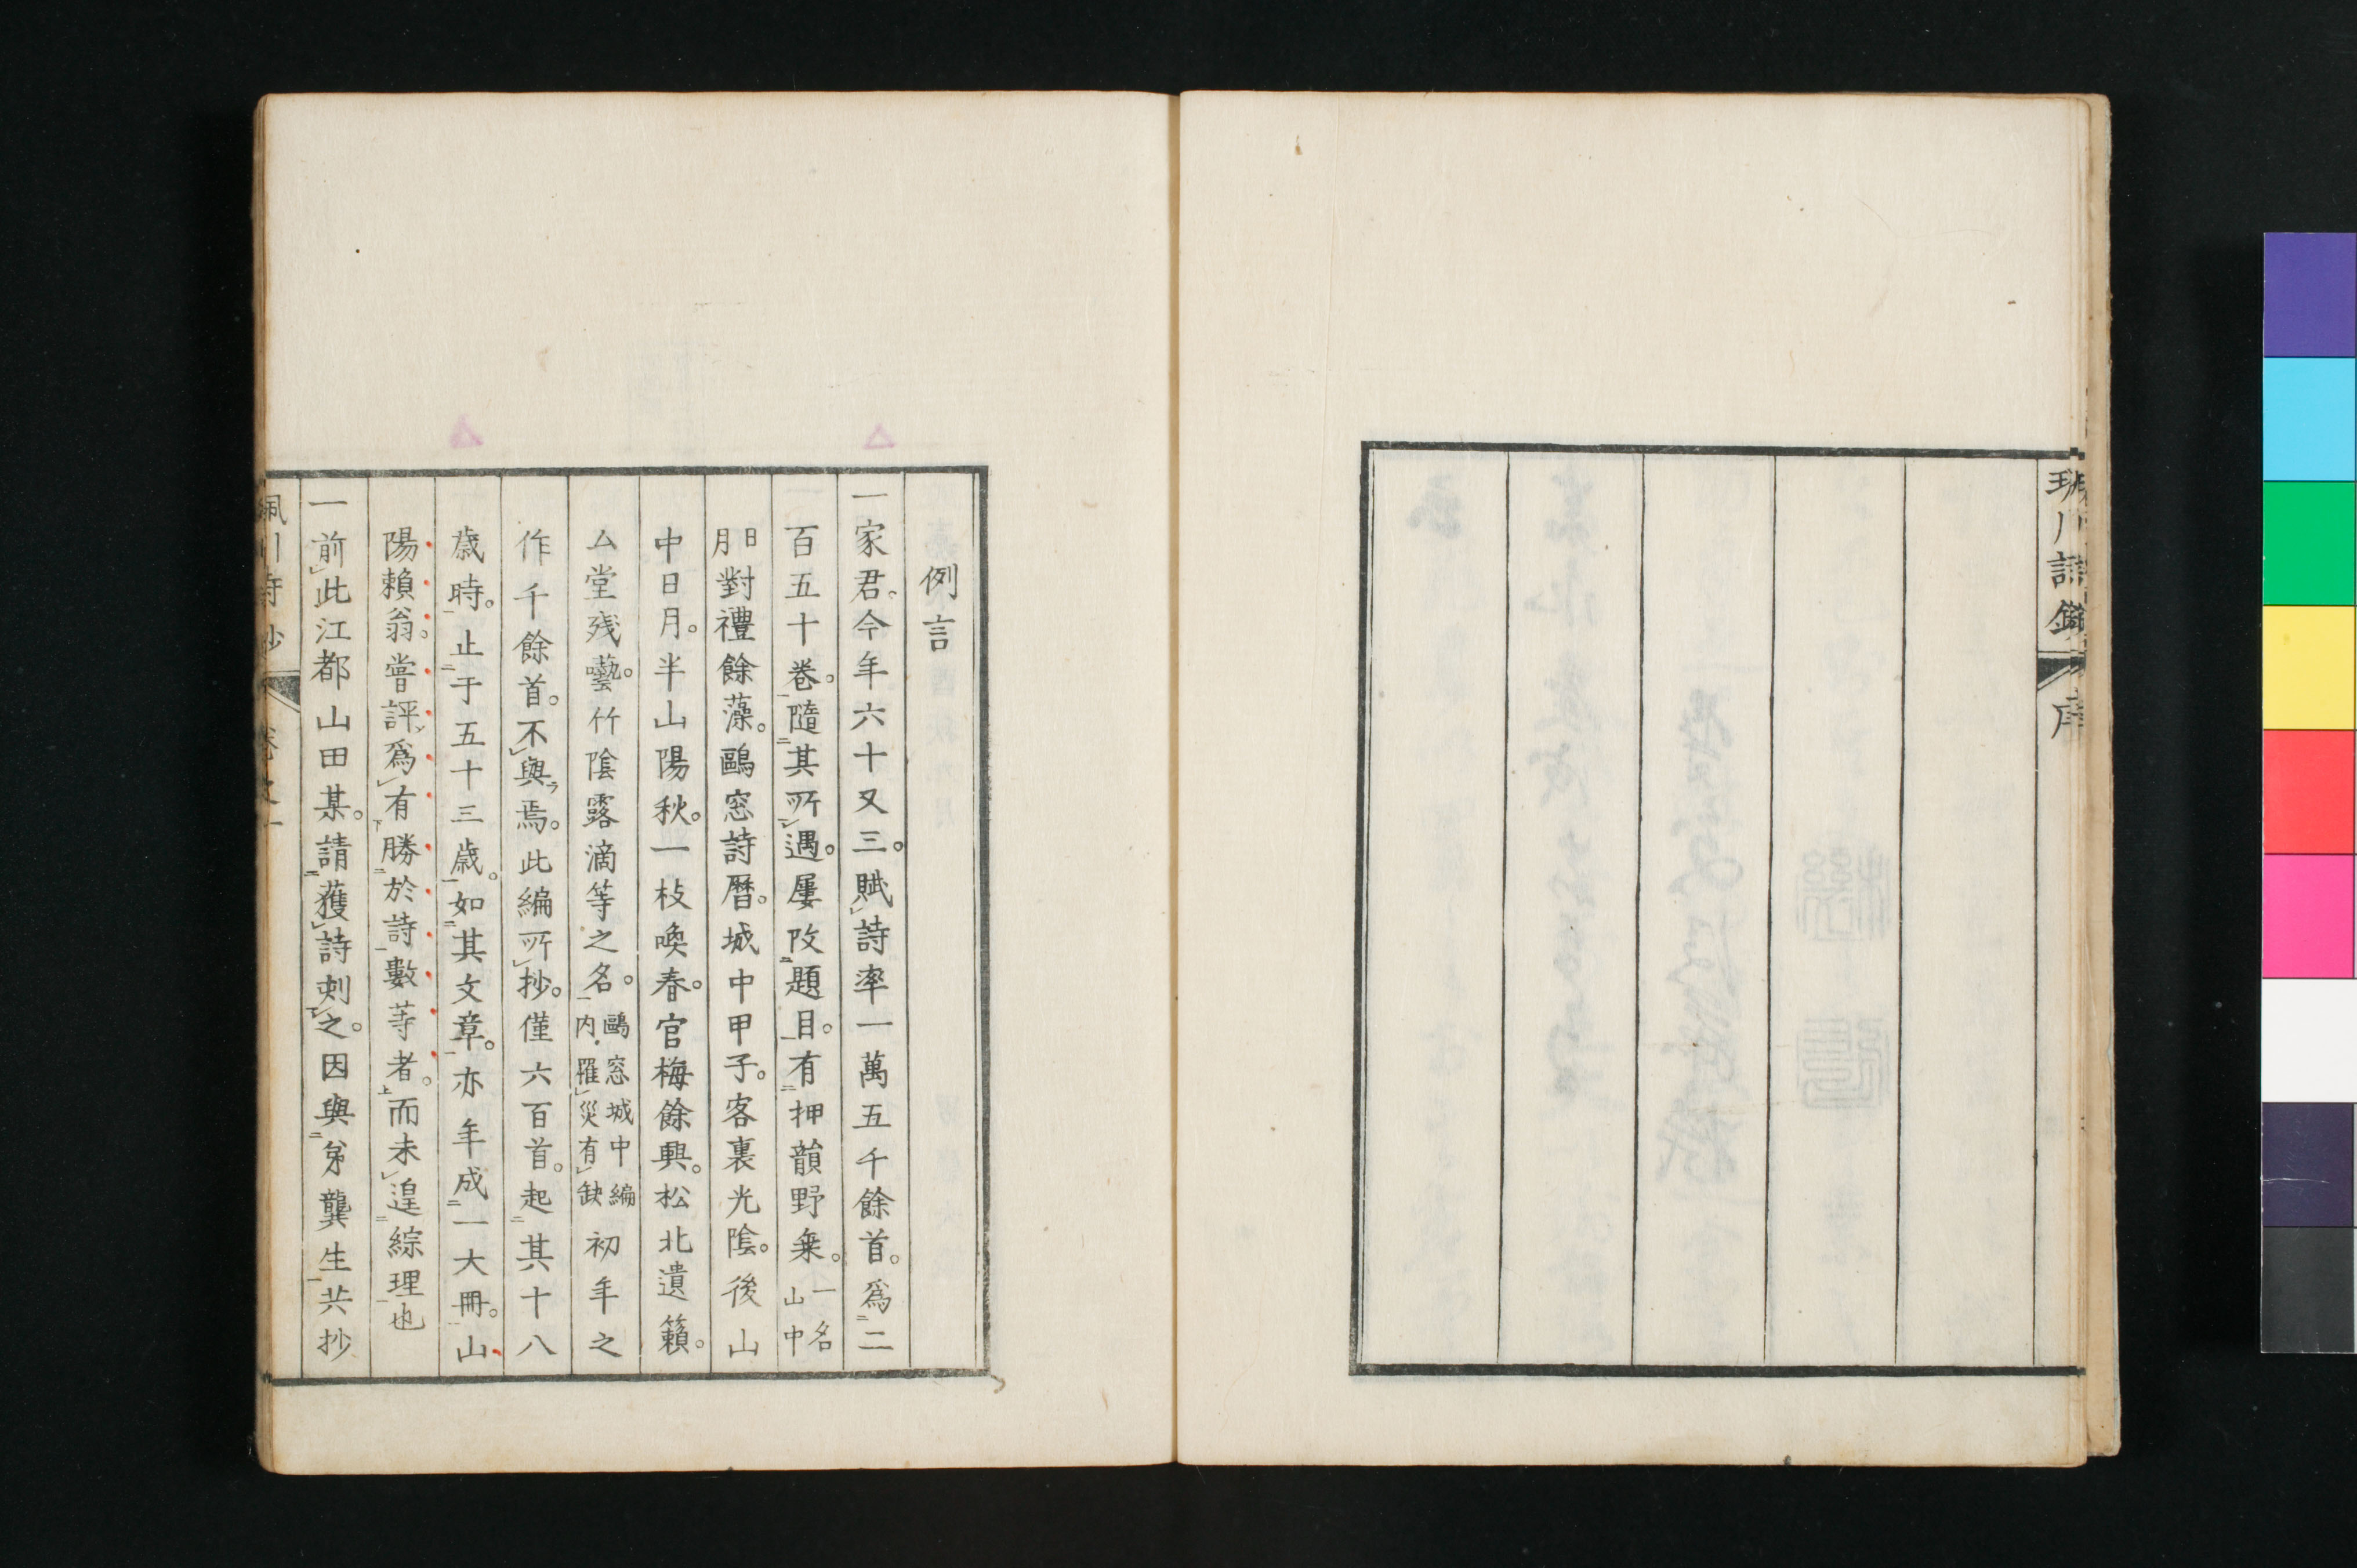 例言
一家君。今年六十又三。賦詩率一萬五千餘首。爲二
百五十卷。隨其所遇。屢改題目。有押韻野乗。一名山中
日月對禮餘藻。鷗窓詩暦。城中甲子。客裏光陰。後山
中日月。半山陽秋。一枝喚春。官梅餘興。松北遺籟。
厶堂残囈。竹陰露滴等之名。鷗窓城中編内羅災有缺初年之
作千餘首。不與焉。此編所抄。僅六百首。起其十八
歳時。止于五十三歳。如其文章。亦年成一大冊。山
陽頼翁。嘗評爲有勝於詩數等者。而未遑綜理也
一前此江都山田某。請獲詩刺之。因與弟龔生共抄